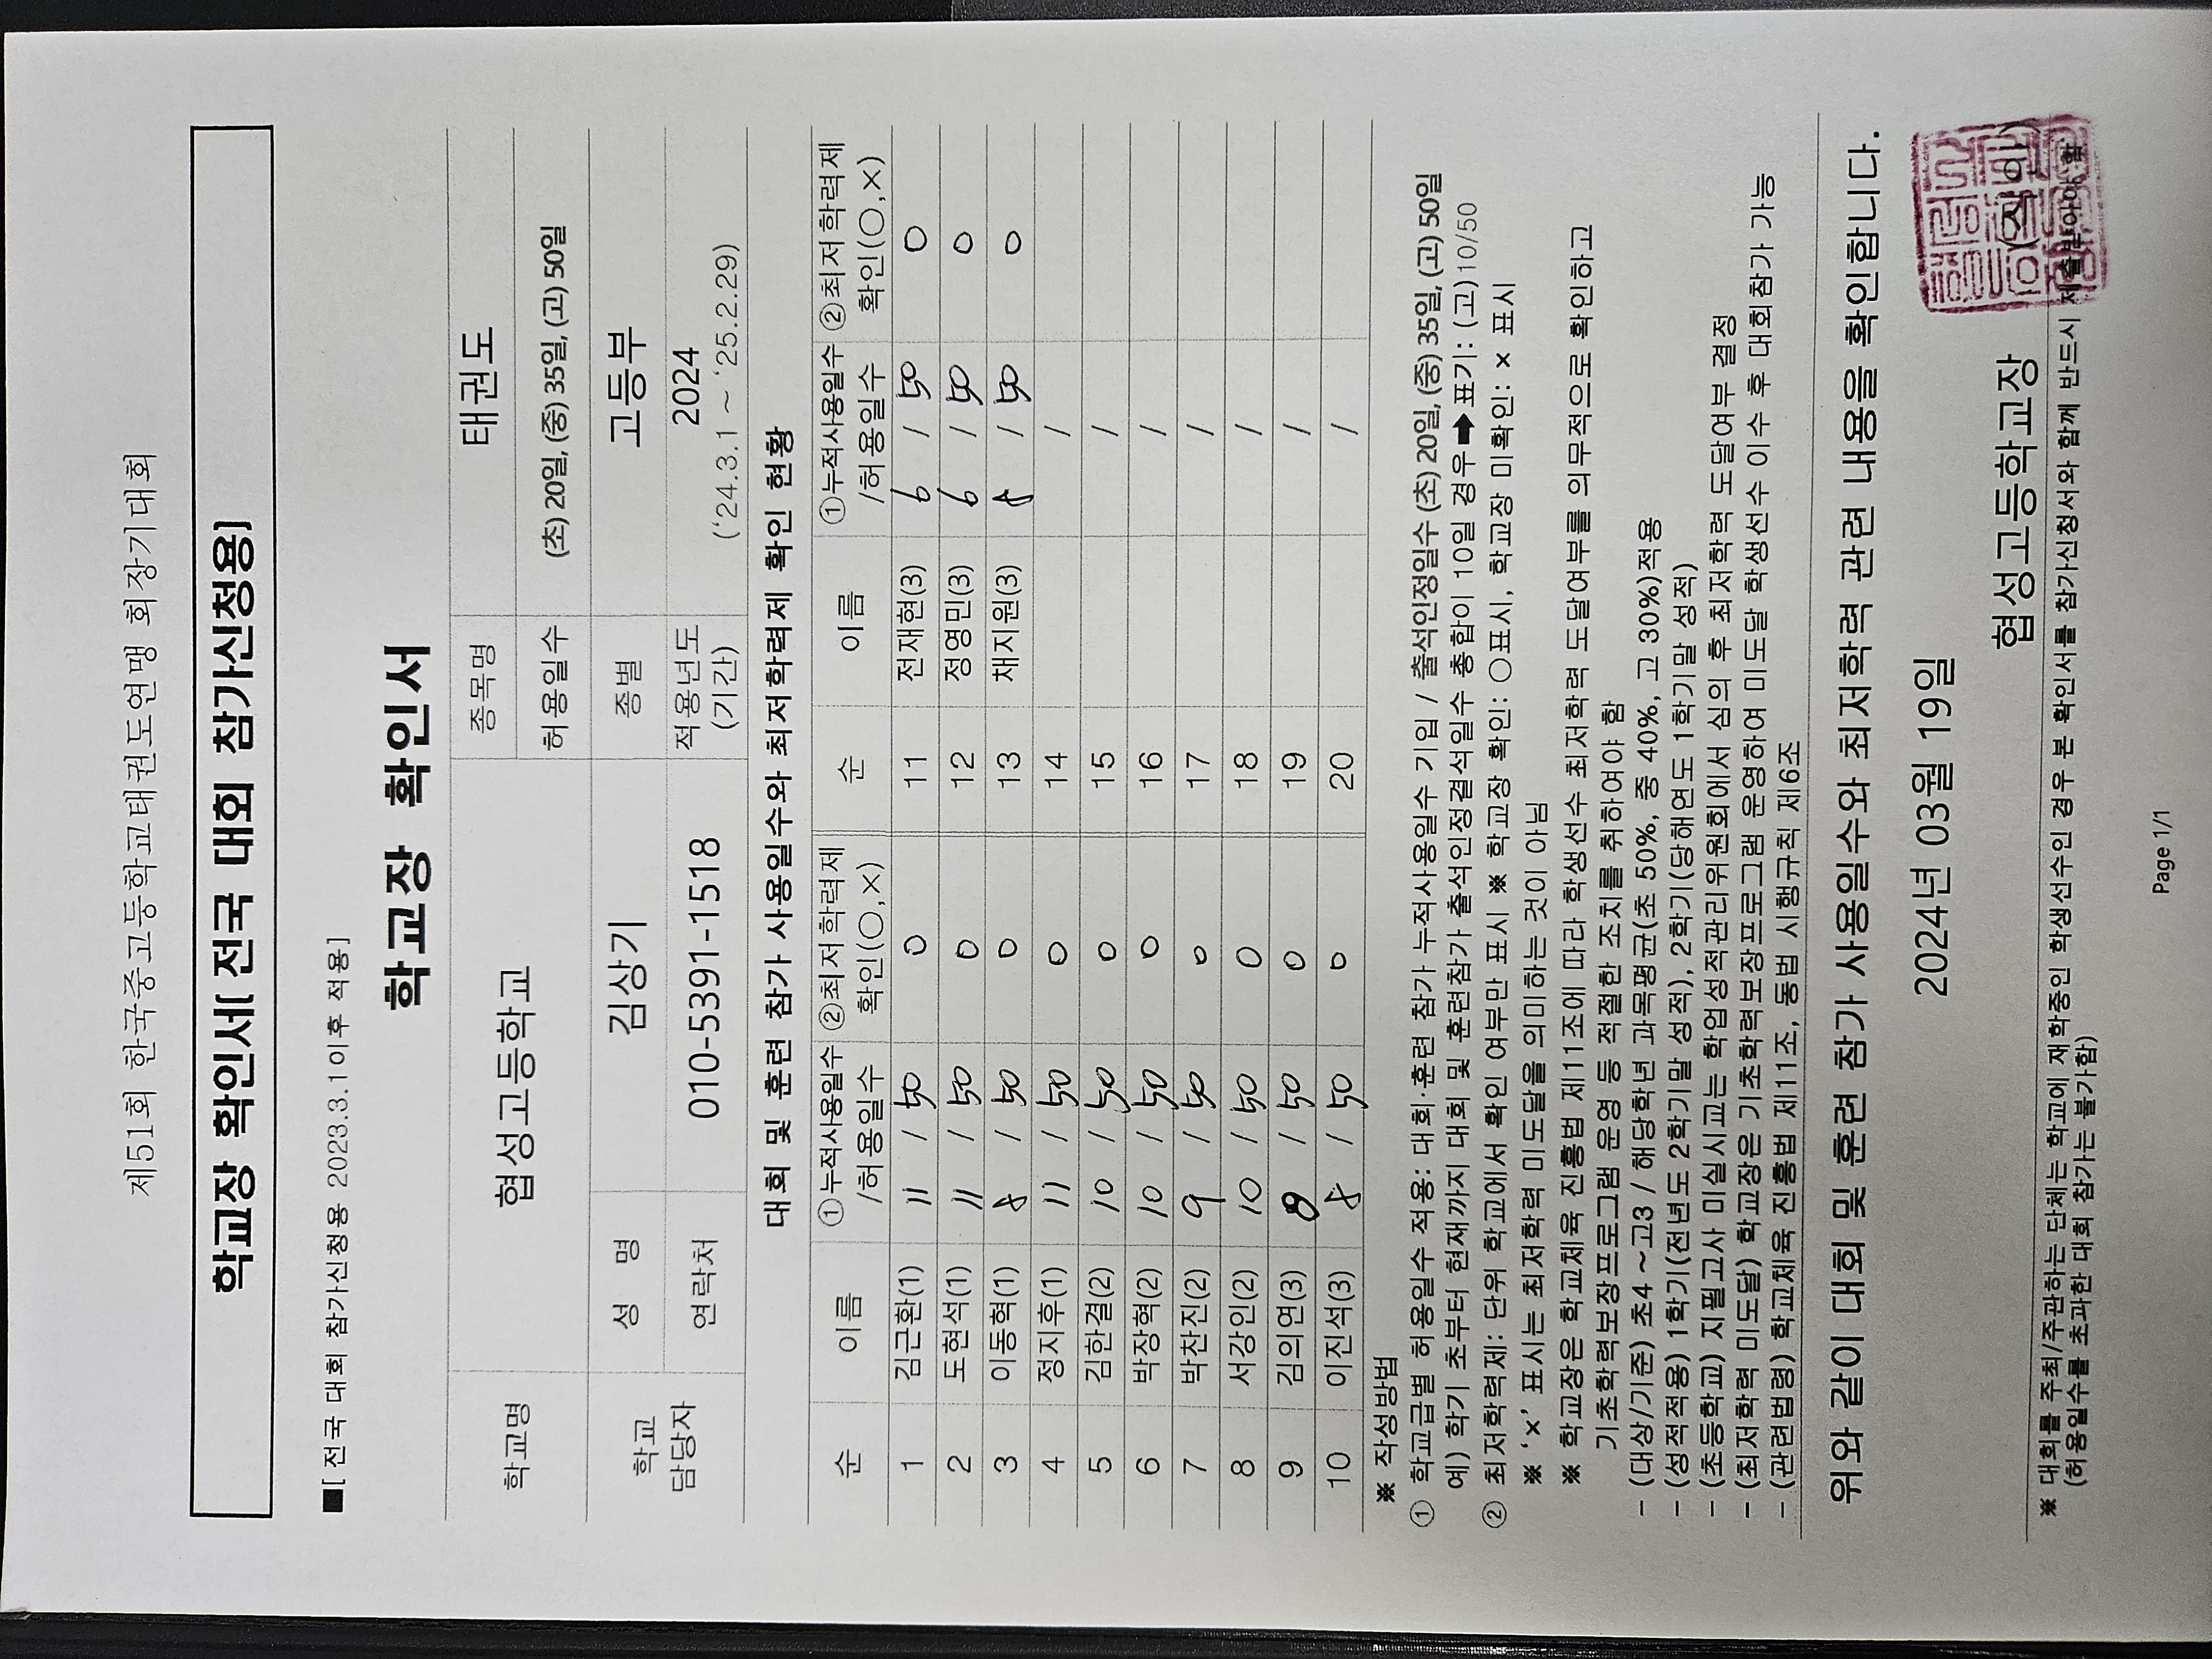 제51회 한국중고등학교태권도연맹 회장기대회
학교장 확인서[ 전국 대회 참가신청용]
■[ 전국 대회 참가신청용 2023.3.1이후 적용]
학교장 확인서
학교명 협성고등학교 종목명 태권도
허용일수 (초) 20일, (중) 35일, (고) 50일
학교 담당자 성 명 김상기 종별 고등부
연락처 010-5391-1518 적용년도 (기간) 2024 (‘24.3.1 ~ ‘25.2.29)
대회 및 훈련 참가 사용일수와 최저학력제 확인 현황
순 이름 ①누적사용일수 /허용일수 ②최저학력제 확인(○,×) 순 이름 ①누적사용일수 /허용일수 ②최저학력제 확인(○,×)
1 김근환(1) 11 / 50 ○ 11 전재현(3) 6 / 50 ○
2 도현석(1) 11 / 50 ○ 12 정영민(3) 6 / 50 ○
3 이동혁(1) 8 / 50 ○ 13 채지원(3) 8 / 50 ○
4 정지후(1) 11 / 50 ○ 14 /
5 김한결(2) 10 / 50 ○ 15 /
6 박장혁(2) 10 / 50 ○ 16 /
7 박찬진(2) 9 / 50 ○ 17 /
8 서강인(2) 10 / 50 ○ 18 /
9 김의연(3) / 50 ○ 19 /
10 이진석(3) 8 / 50 ○ 20 /
※ 작성방법
① 학교급별 허용일수 적용: 대회·훈련 참가 누적사용일수 기입 / 출석인정일수 (초) 20일, (중) 35일, (고) 50일
예) 학기 초부터 현재까지 대회 및 훈련참가 출석인정결석일수 총합이 10일 경우 ➡ 표기: (고)10/50
② 최저학력제: 단위 학교에서 확인 여부만 표시 ※ 학교장 확인: ○표시, 학교장 미확인: × 표시
※ ‘×’ 표시는 최저학력 미도달을 의미하는 것이 아님
※ 학교장은 학교체육 진흥법 제11조에 따라 학생선수 최저학력 도달여부를 의무적으로 확인하고
기초학력보장프로그램 운영 등 적절한 조치를 취하여야 함
- (대상/기준) 초4 ~고3 / 해당학년 과목평균(초 50%, 중 40%, 고 30%)적용
- (성적적용) 1학기(전년도 2학기말 성적), 2학기(당해연도 1학기말 성적)
- (초등학교) 지필고사 미실시교는 학업성적관리위원회에서 심의 후 최저학력 도달여부 결정
- (최저학력 미도달) 학교장은 기초학력보장프로그램 운영하여 미도달 학생선수 이수 후 대회참가 가능
- (관련법령) 학교체육 진흥법 제11조, 동법 시행규칙 제6조
위와 같이 대회 및 훈련 참가 사용일수와 최저학력 관련 내용을 확인합니다.
2024년 03월 19일
협성고등학교장 (직인)
※ 대회를 주최/주관하는 단체는 학교에 재학중인 학생선수인 경우 본 확인서를 참가신청서와 함께 반드시 제출받아야 함
(허용일수를 초과한 대회 참가는 불가함)
Page 1/1